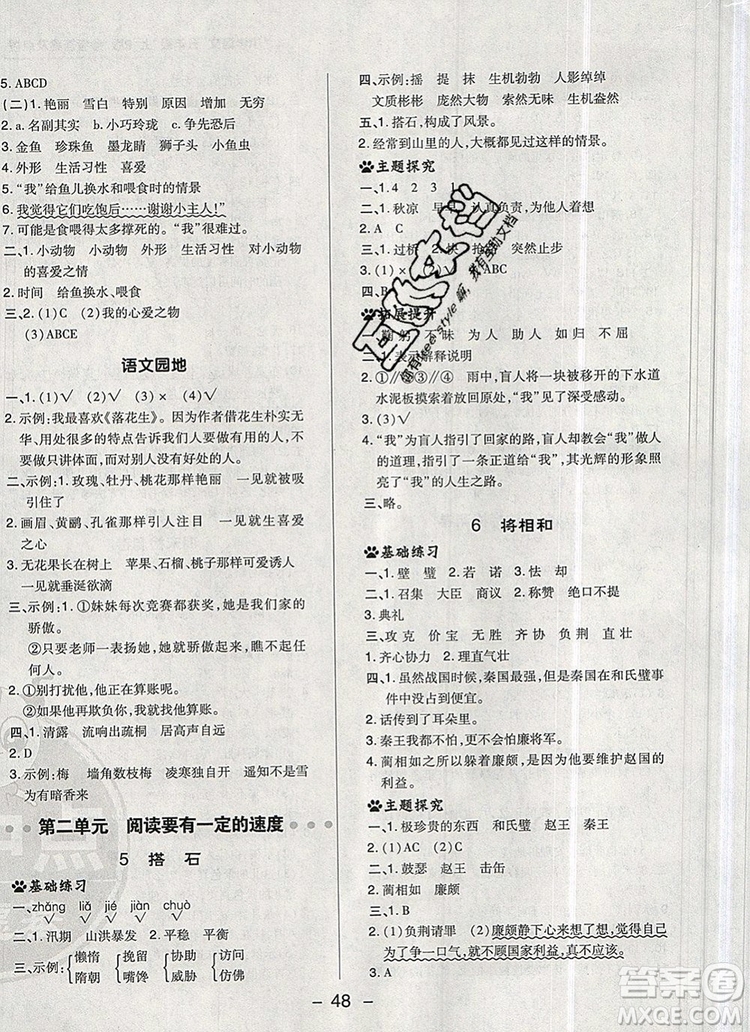 5. ABCD
(二)1. 艳丽 雪白 特别 原因 增加 无穷
2. a. 名副其实 b. 小巧玲珑 c. 争先恐后
3. 金鱼 珍珠鱼 墨龙睛 狮子头 小虫鱼
4. 外形 生活习性 喜爱
5. “我”给鱼儿换水和喂食时的情景
6. 我觉得它们吃饱后……谢谢小主人!”
7. 可能是食喂得太多撑死的。“我”很难过。
二、1. 小动物 小动物 外形 生活习性 对小动物
的喜爱之情
2. 时间 给鱼换水、喂食
三、(1)ABCDE (2)我的心爱之物
(3)ABCE
语文园地
一、(1)√ (2)√ (3)× (4)√
2. 示例:我最喜欢《落花生》。因为作者借花生朴实无
华、用处很多的特点告诉我们人要做有用的人,不要
做只讲体面,而对别人没有好处的人。
二、示例:1. 玫瑰、牡丹、桃花那样艳丽 一下就被吸
引住了
2. 画眉、黄鹂、孔雀那样引人注目 一见就生喜爱
之心
3. 无花果长在树上 苹果、石榴、桃子那样诱人
一见就垂涎欲滴
三、示例:1. ①妹妹每次竞赛都获奖,她是我们家的
骄傲。
②只要老师一表扬我妹妹,她就很骄傲,瞧不起任
何人。
2. ①别打扰他,他正在算账呢。
②如果他再欺负你,我就找他算账。
四、1. 清露 流响出疏桐 居高声自远
2. D
3. 示例:梅 墙角数枝梅 凌寒独自开 遥知不是雪
为有暗香来
第二单元 阅读要有一定的速度
5 搭石
基础练习
一、zhǎng liǎ jié jiàn chuò
√ √ √ √ √
二、1. 汛期 山洪暴发 2. 平稳 平衡
三、示例: 懒惰 挽留 协助 访问
隋朝 嘴馋 威胁 仿佛
四、示例:摇 提 抹 生机勃勃 人影绰绰
文质彬彬 庞然大物 索然无味 生机盎然
五、1. 搭石,构成了风景。
2. 经常到山里的人,大概都见过这样的情景。
主题探究
一、1. 4 2 3 1
2. 秋凉 早早 认真负责,为他人着想
二、A C
三、1. 过桥 2. 快 抢路 突然止步
3. (1)× (2)√
四、B
拓展提升
一、鞠躬 不昧 为人 助人 如归 不屈
二、1. 表示解释说明
2. ①∥①③④∥④ 雨中,盲人将被移开的下水道
水泥板摸索着放回原处,“我”见了深受感动。
3. (3)√
4. “我”为盲人指引了回家的路,盲人教会“我”做人
的道理,指引了一条正道给“我”,其光辉的形象照亮
了“我”的人生之路。
三、略。
6 将相和
基础练习
一、1. 壁 璧 2. 若 诺 3. 怯 却
二、1. 召集 大臣 商议 2. 称赞 绝口不提
3. 典礼
三、攻克 价宝 无胜 齐协 负荆 直壮
1. 齐心协力 2. 理直气壮
四、1. 虽然战国时候,秦国最强,但是秦国在和氏璧事
件中,没有占到便宜。
2. 话传到了耳朵里。
3. 秦王我都不怕,我不会怕廉将军。
4. 蔺相如之所以躲着廉颇,是因为他要维护赵国的
利益。
主题探究
一、1. 极珍贵的东西 和氏璧 赵王 秦王
2. (1)AC (2)C
二、1. 鼓瑟 赵王 击缶
2. 蔺相如 廉颇
三、1. B
2. (1)负荆请罪 (2)廉颇静下心来想了想,觉得自己
为了争一口气,就不顾国家利益,真不应该。
3. A
48
答案圈
MXQE.COM